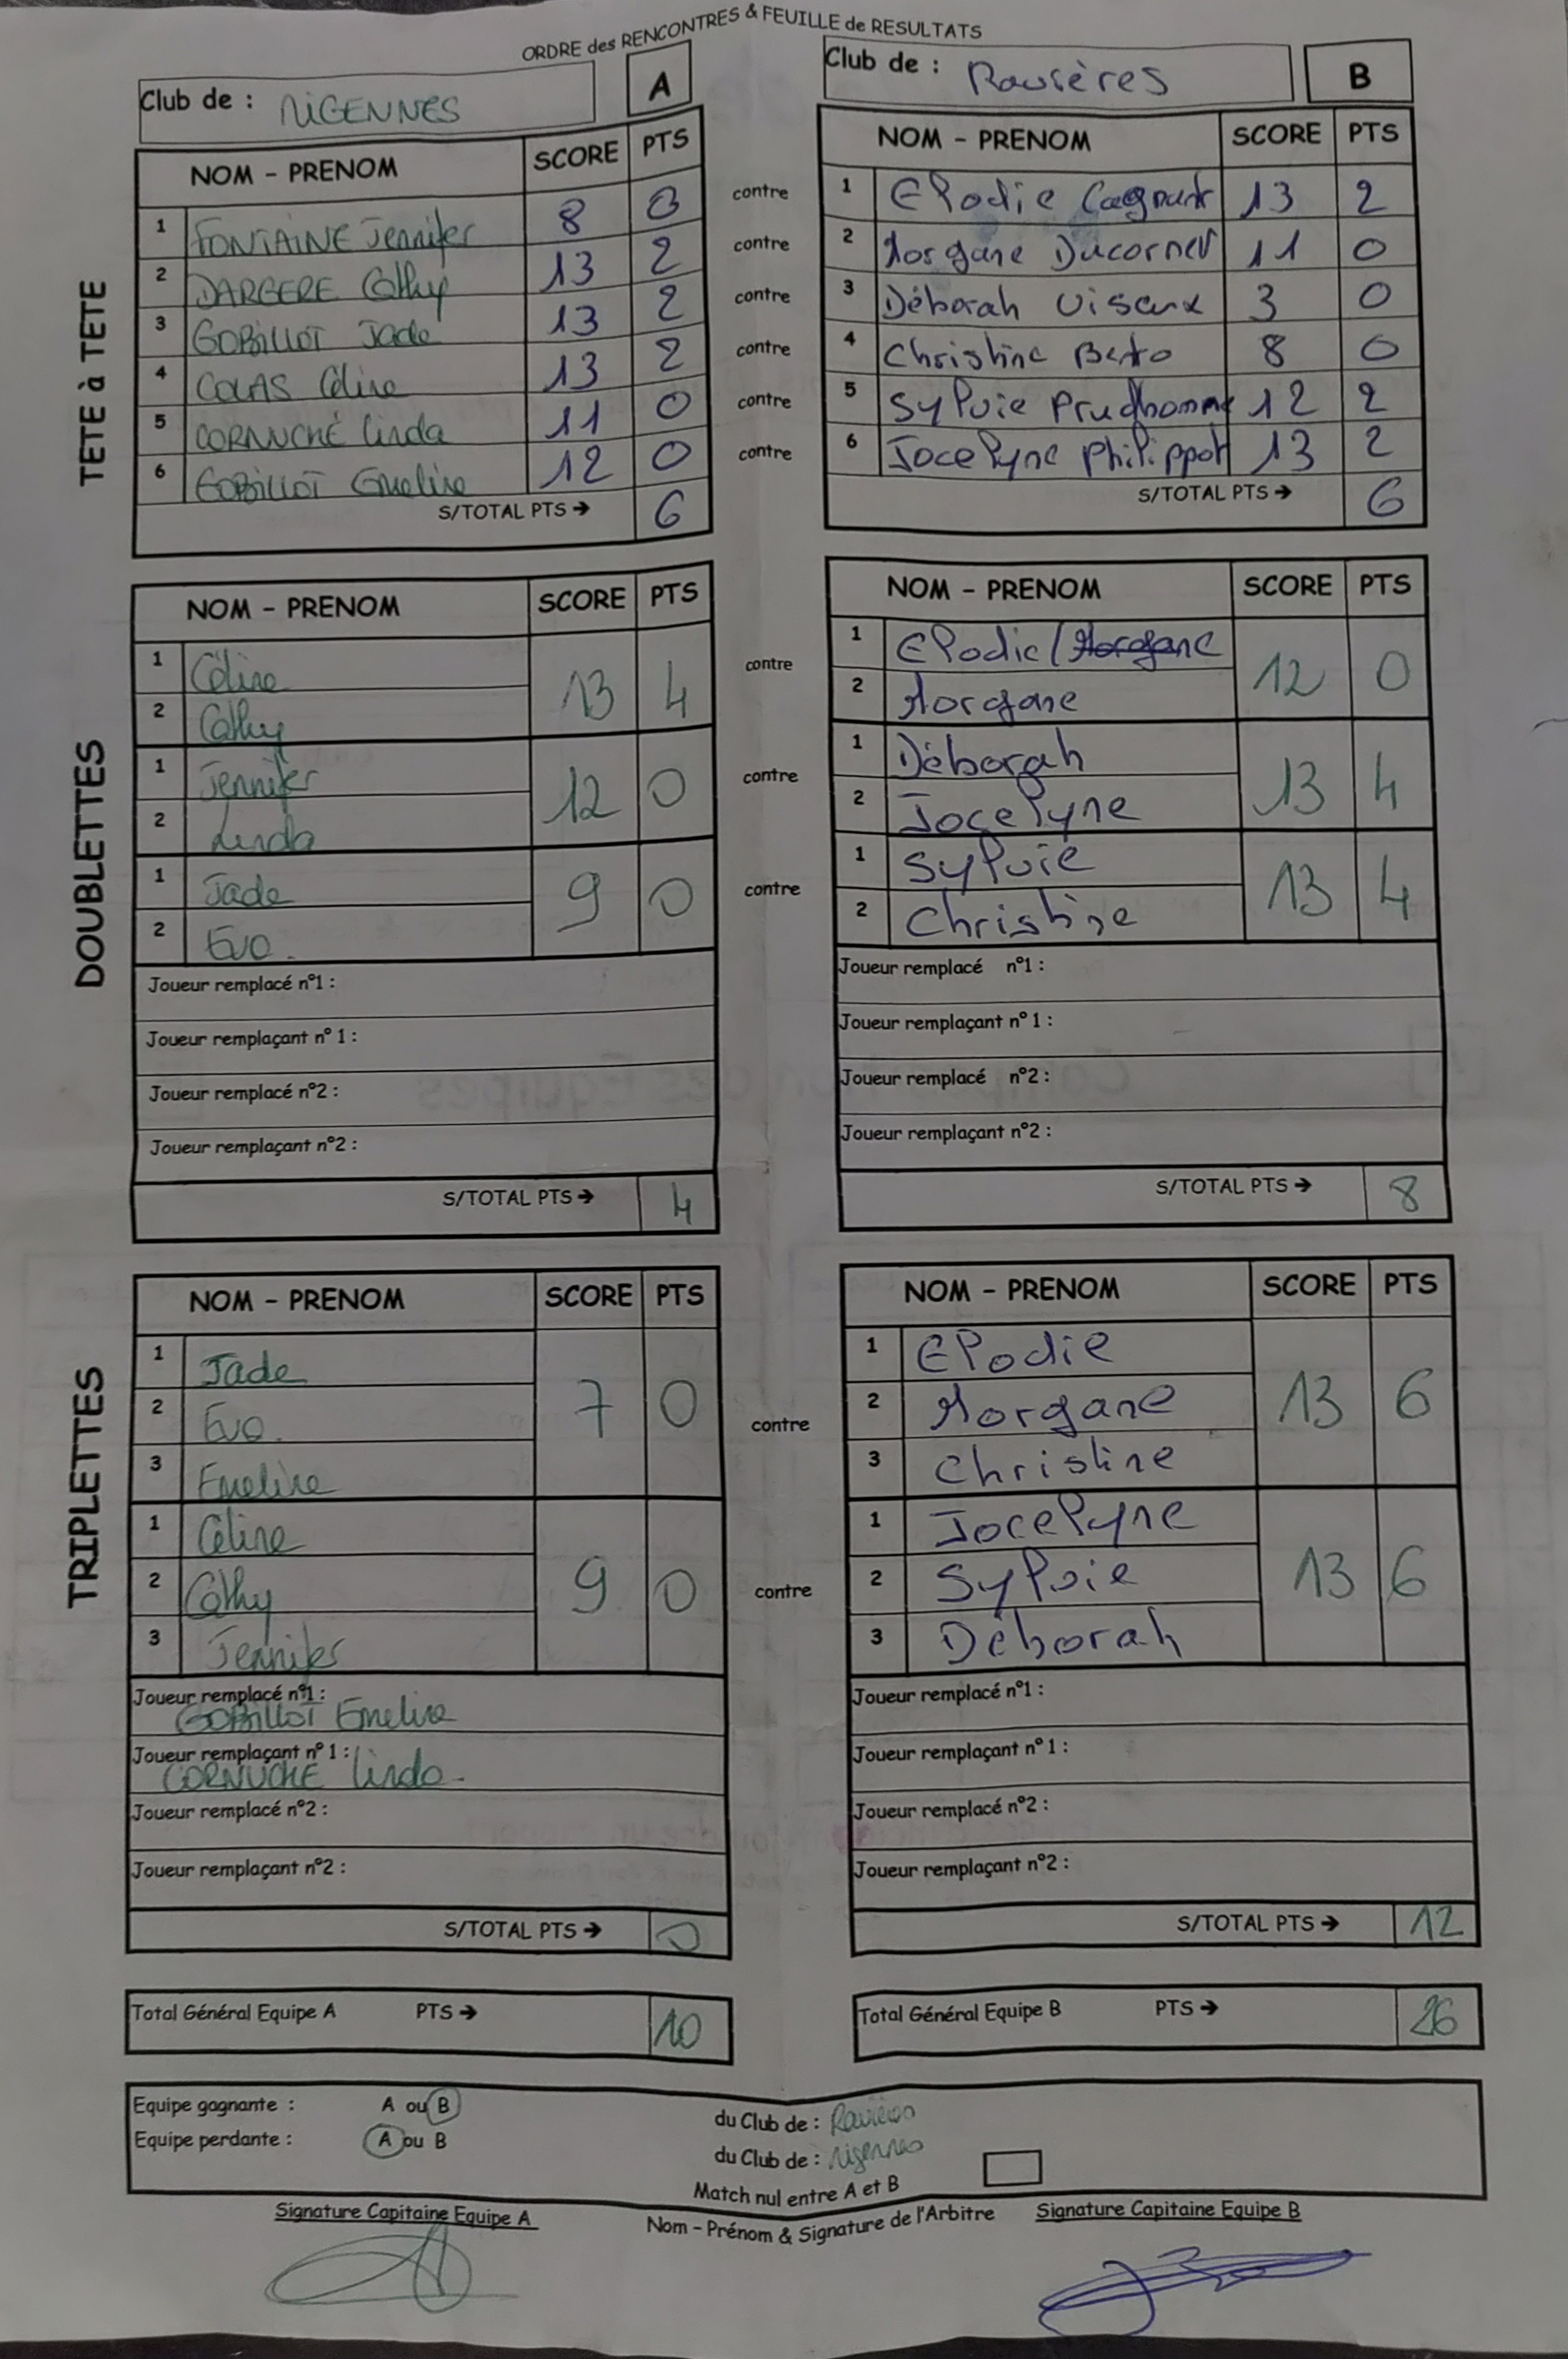 ORDRE des RENCONTRES & FEUILLE de RESULTATS
Club de : MIGENNES A
NOM - PRENOM SCORE PTS
TETE à TETE
1 FONTAINE Jennifer 8 0
2 DARGERE Cathy 13 2
3 GOBILLOT Jade 13 2
4 COLAS Céline 13 2
5 CORNUCHÉ Linda 11 0
6 GOBILLOT Emeline 12 0
S/TOTAL PTS → 6
contre
contre
contre
contre
contre
contre
Club de : Ravières B
NOM - PRENOM SCORE PTS
1 Elodie 13 2
2 Morgane Ducornet 11 0
3 Déborah Viseux 3 0
4 Christine 8 0
5 Sylvie Prudhomme 12 2
6 Jocelyne Philippot 13 2
S/TOTAL PTS → 6
DOUBLETTES
NOM - PRENOM SCORE PTS
1 Céline 13 4
2 Cathy
1 Jennifer 12 0
2 Linda
1 Jade 9 0
2 Eva.
Joueur remplacé n°1 :
Joueur remplaçant n° 1 :
Joueur remplacé n°2 :
Joueur remplaçant n°2 :
S/TOTAL PTS → 4
contre
contre
contre
NOM - PRENOM SCORE PTS
1 Elodie / Morgane 12 0
2 Morgane
1 Déborah 13 4
2 Jocelyne
1 Sylvie 13 4
2 Christine
Joueur remplacé n°1 :
Joueur remplaçant n° 1 :
Joueur remplacé n°2 :
Joueur remplaçant n°2 :
S/TOTAL PTS → 8
TRIPLETTES
NOM - PRENOM SCORE PTS
1 Jade 7 0
2 Eva.
3 Emeline
1 Céline 9 0
2 Cathy
3 Jennifer
Joueur remplacé n°1 :
GOBILLOT Emeline
Joueur remplaçant n° 1 :
CORNUCHÉ Linda.
Joueur remplacé n°2 :
Joueur remplaçant n°2 :
S/TOTAL PTS → 0
contre
contre
NOM - PRENOM SCORE PTS
1 Elodie 13 6
2 Morgane
3 Christine
1 Jocelyne 13 6
2 Sylvie
3 Déborah
Joueur remplacé n°1 :
Joueur remplaçant n° 1 :
Joueur remplacé n°2 :
Joueur remplaçant n°2 :
S/TOTAL PTS → 12
Total Général Equipe A PTS → 10
Total Général Equipe B PTS → 26
Equipe gagnante : A ou B du Club de : Ravières
Equipe perdante : A ou B du Club de : Migennes
Match nul entre A et B
Signature Capitaine Equipe A
Nom - Prénom & Signature de l'Arbitre
Signature Capitaine Equipe B